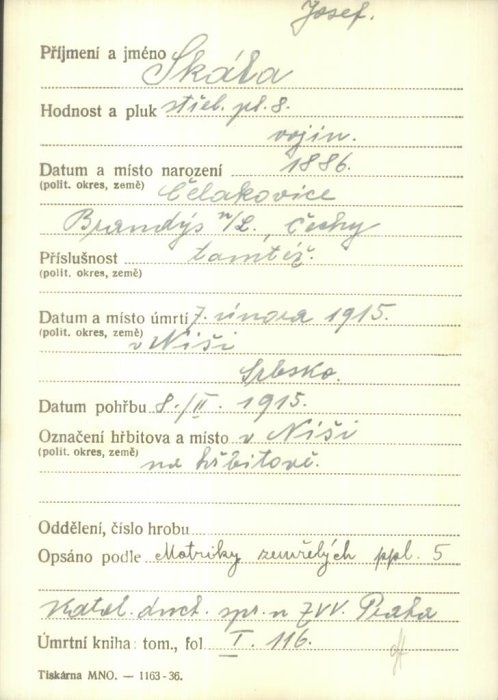 Josef.
Příjmení a jméno Skála
Hodnost a pluk střel. pl. 8.
vojín.
Datum a místo narození 1886.
(polit. okres, země) Čelakovice
Brandýs n/L., Čechy
Příslušnost tamtéž.
(polit. okres, země)
Datum a místo úmrtí 7. února 1915.
(polit. okres, země) v Niši
Srbsko.
Datum pohřbu 8./II. 1915.
Označení hřbitova a místo v Niši
(polit. okres, země) na hřbitově.
Oddělení, číslo hrobu
Opsáno podle Matriky zemřelých ppl. 5
Katol. duch. spr. u ZVV. Praha
Úmrtní kniha: tom., fol I. 116.
Tiskárna MNO. — 1163-36.